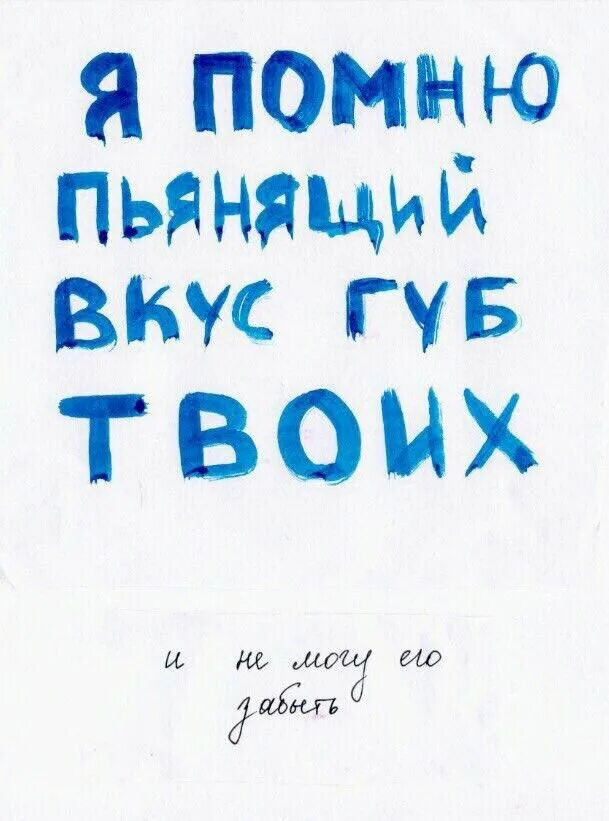 Я ПОМНЮ
ПЬЯНЯЩИЙ
ВКУС ГУБ
ТВОИХ
и не могу его
забыть